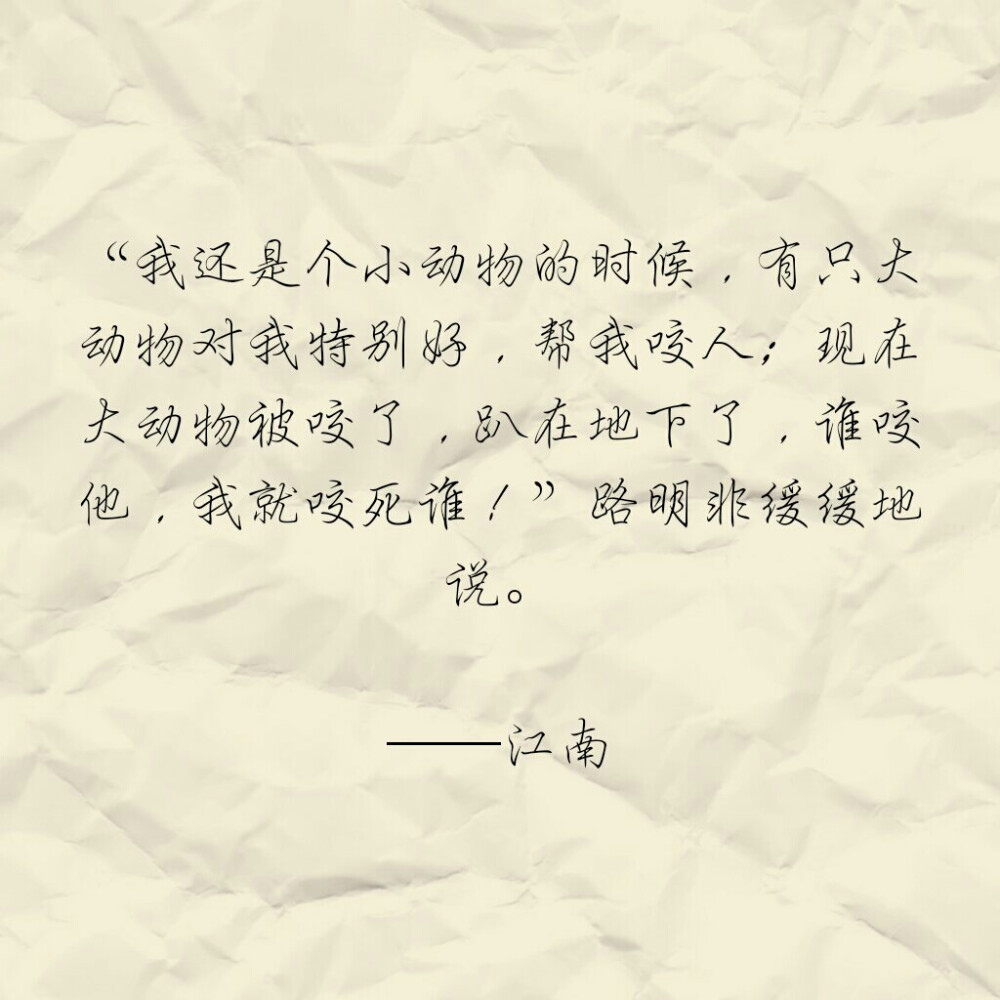 “我还是个小动物的时候，有只大
动物对我特别好，帮我咬人；现在
大动物被咬了，趴在地下了，谁咬
他，我就咬死谁！”路明非缓缓地
说。
——江南